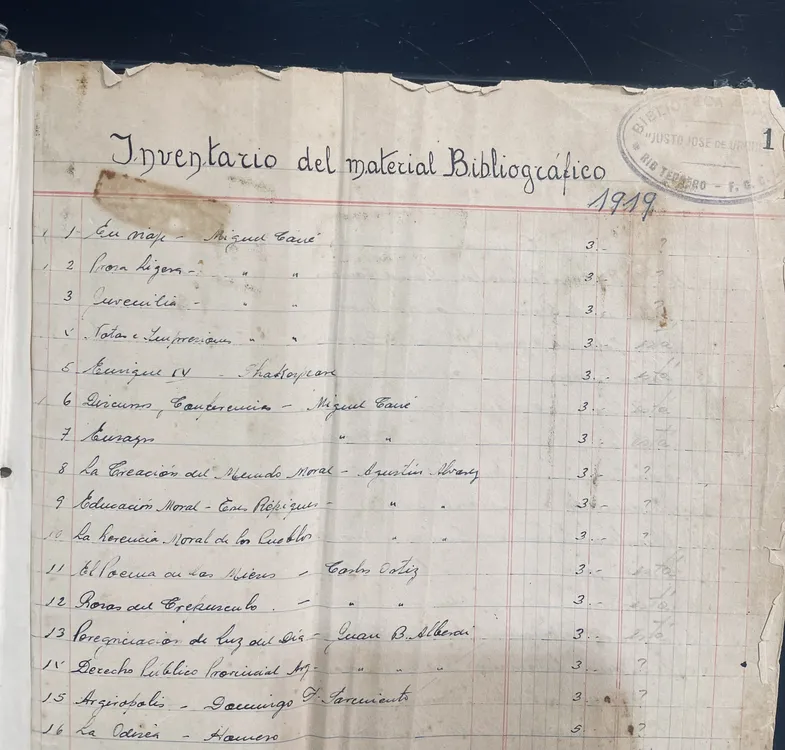 BIBLIOTECA
"JUSTO JOSE DE URQUI
RIO TERCERO - F. C. C.
1
Inventario del material Bibliográfico
1919
1 En viaje - Miguel Cané 3.- ?
2 Prosa Ligera - " " 3.- ?
3 Juvenilia - " " 3.- ?
4 Notas e Impresiones " " 3.-
5 Enrique IV - Shakespeare 3.-
6 Discursos, Conferencias - Miguel Cané 3.-
7 Ensayos " " 3.-
8 La Creación del Mundo Moral - Agustín Alvarez 3.- ?
9 Educación Moral - Tres Répiques - " " 3.- ?
10 La herencia Moral de los Pueblos " " 3.- ?
11 El Poema de las Mieses - Carlos Ortiz 3.-
12 Rosas del Crepúsculo. - " " 3.-
13 Peregrinación de Luz del Día - Juan B. Alberdi 3.-
14 Derecho Público Provincial Arg - " " " 3.- ?
15 Argirópolis - Domingo F. Sarmiento 3.- ?
16 La Odisea - Homero 5.- ?